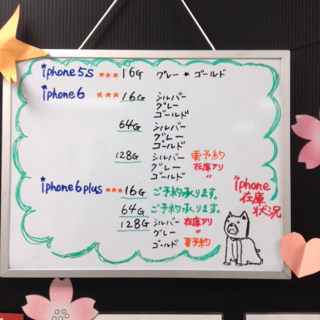 iphone5s *** 16G グレー * ゴールド
iphone6 *** 16G シルバー
グレー
ゴールド
64G シルバー
グレー
ゴールド
128G シルバー 要予約
グレー 在庫アリ
ゴールド 〃
iphone6plus *** 16G ご予約承ります。
64G ご予約承ります。
128G シルバー 在庫アリ
グレー 〃
ゴールド 要予約
iphone
在庫
状況